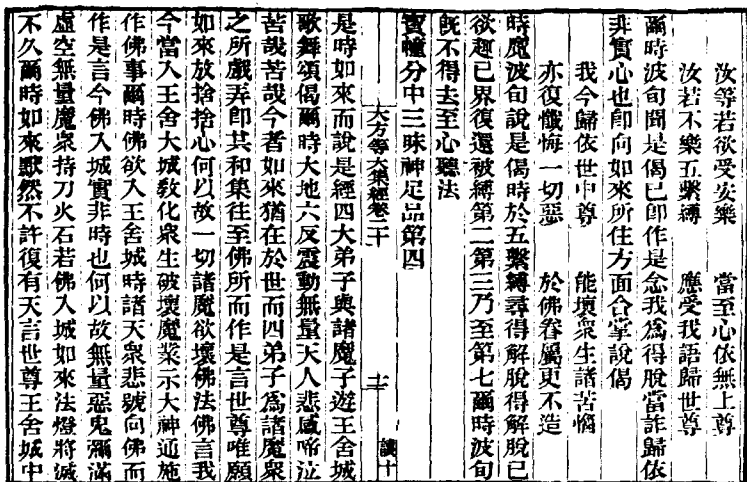 汝等若欲受安樂　當至心依無上尊
汝若不樂五繫縛　應受我語歸世尊
爾時波旬聞是偈已即作是念我為得脫當詐歸依
非實心也即向如來所住方面合掌說偈
我今歸依世中尊　能壞眾生諸苦惱
亦復懺悔一切惡　於佛眷屬更不造
時魔波旬說是偈時於五繫縛尋得解脫得解脫已
欲趣已界復還被縛第二第三乃至第七爾時波旬
既不得去至心聽法
寶幢分中三昧神足品第四
大方等大集經卷二十　十二　讓十
是時如來而說是經四大弟子與諸魔子遊王舍城
歌舞頌偈爾時大地六反震動無量天人悲感啼泣
苦哉苦哉今者如來猶在於世而四弟子為諸魔眾
之所戲弄即其和集往至佛所而作是言世尊唯願
如來放捨捨心何以故一切諸魔欲壞佛法佛言我
今當入王舍大城教化眾生破壞魔業示大神通施
作佛事爾時佛欲入王舍城時諸天眾悲號向佛而
作是言今佛入城實非時也何以故無量惡鬼彌滿
虛空無量魔眾持刀火石若佛入城如來法燈將滅
不久爾時如來默然不許復有天言世尊王舍城中